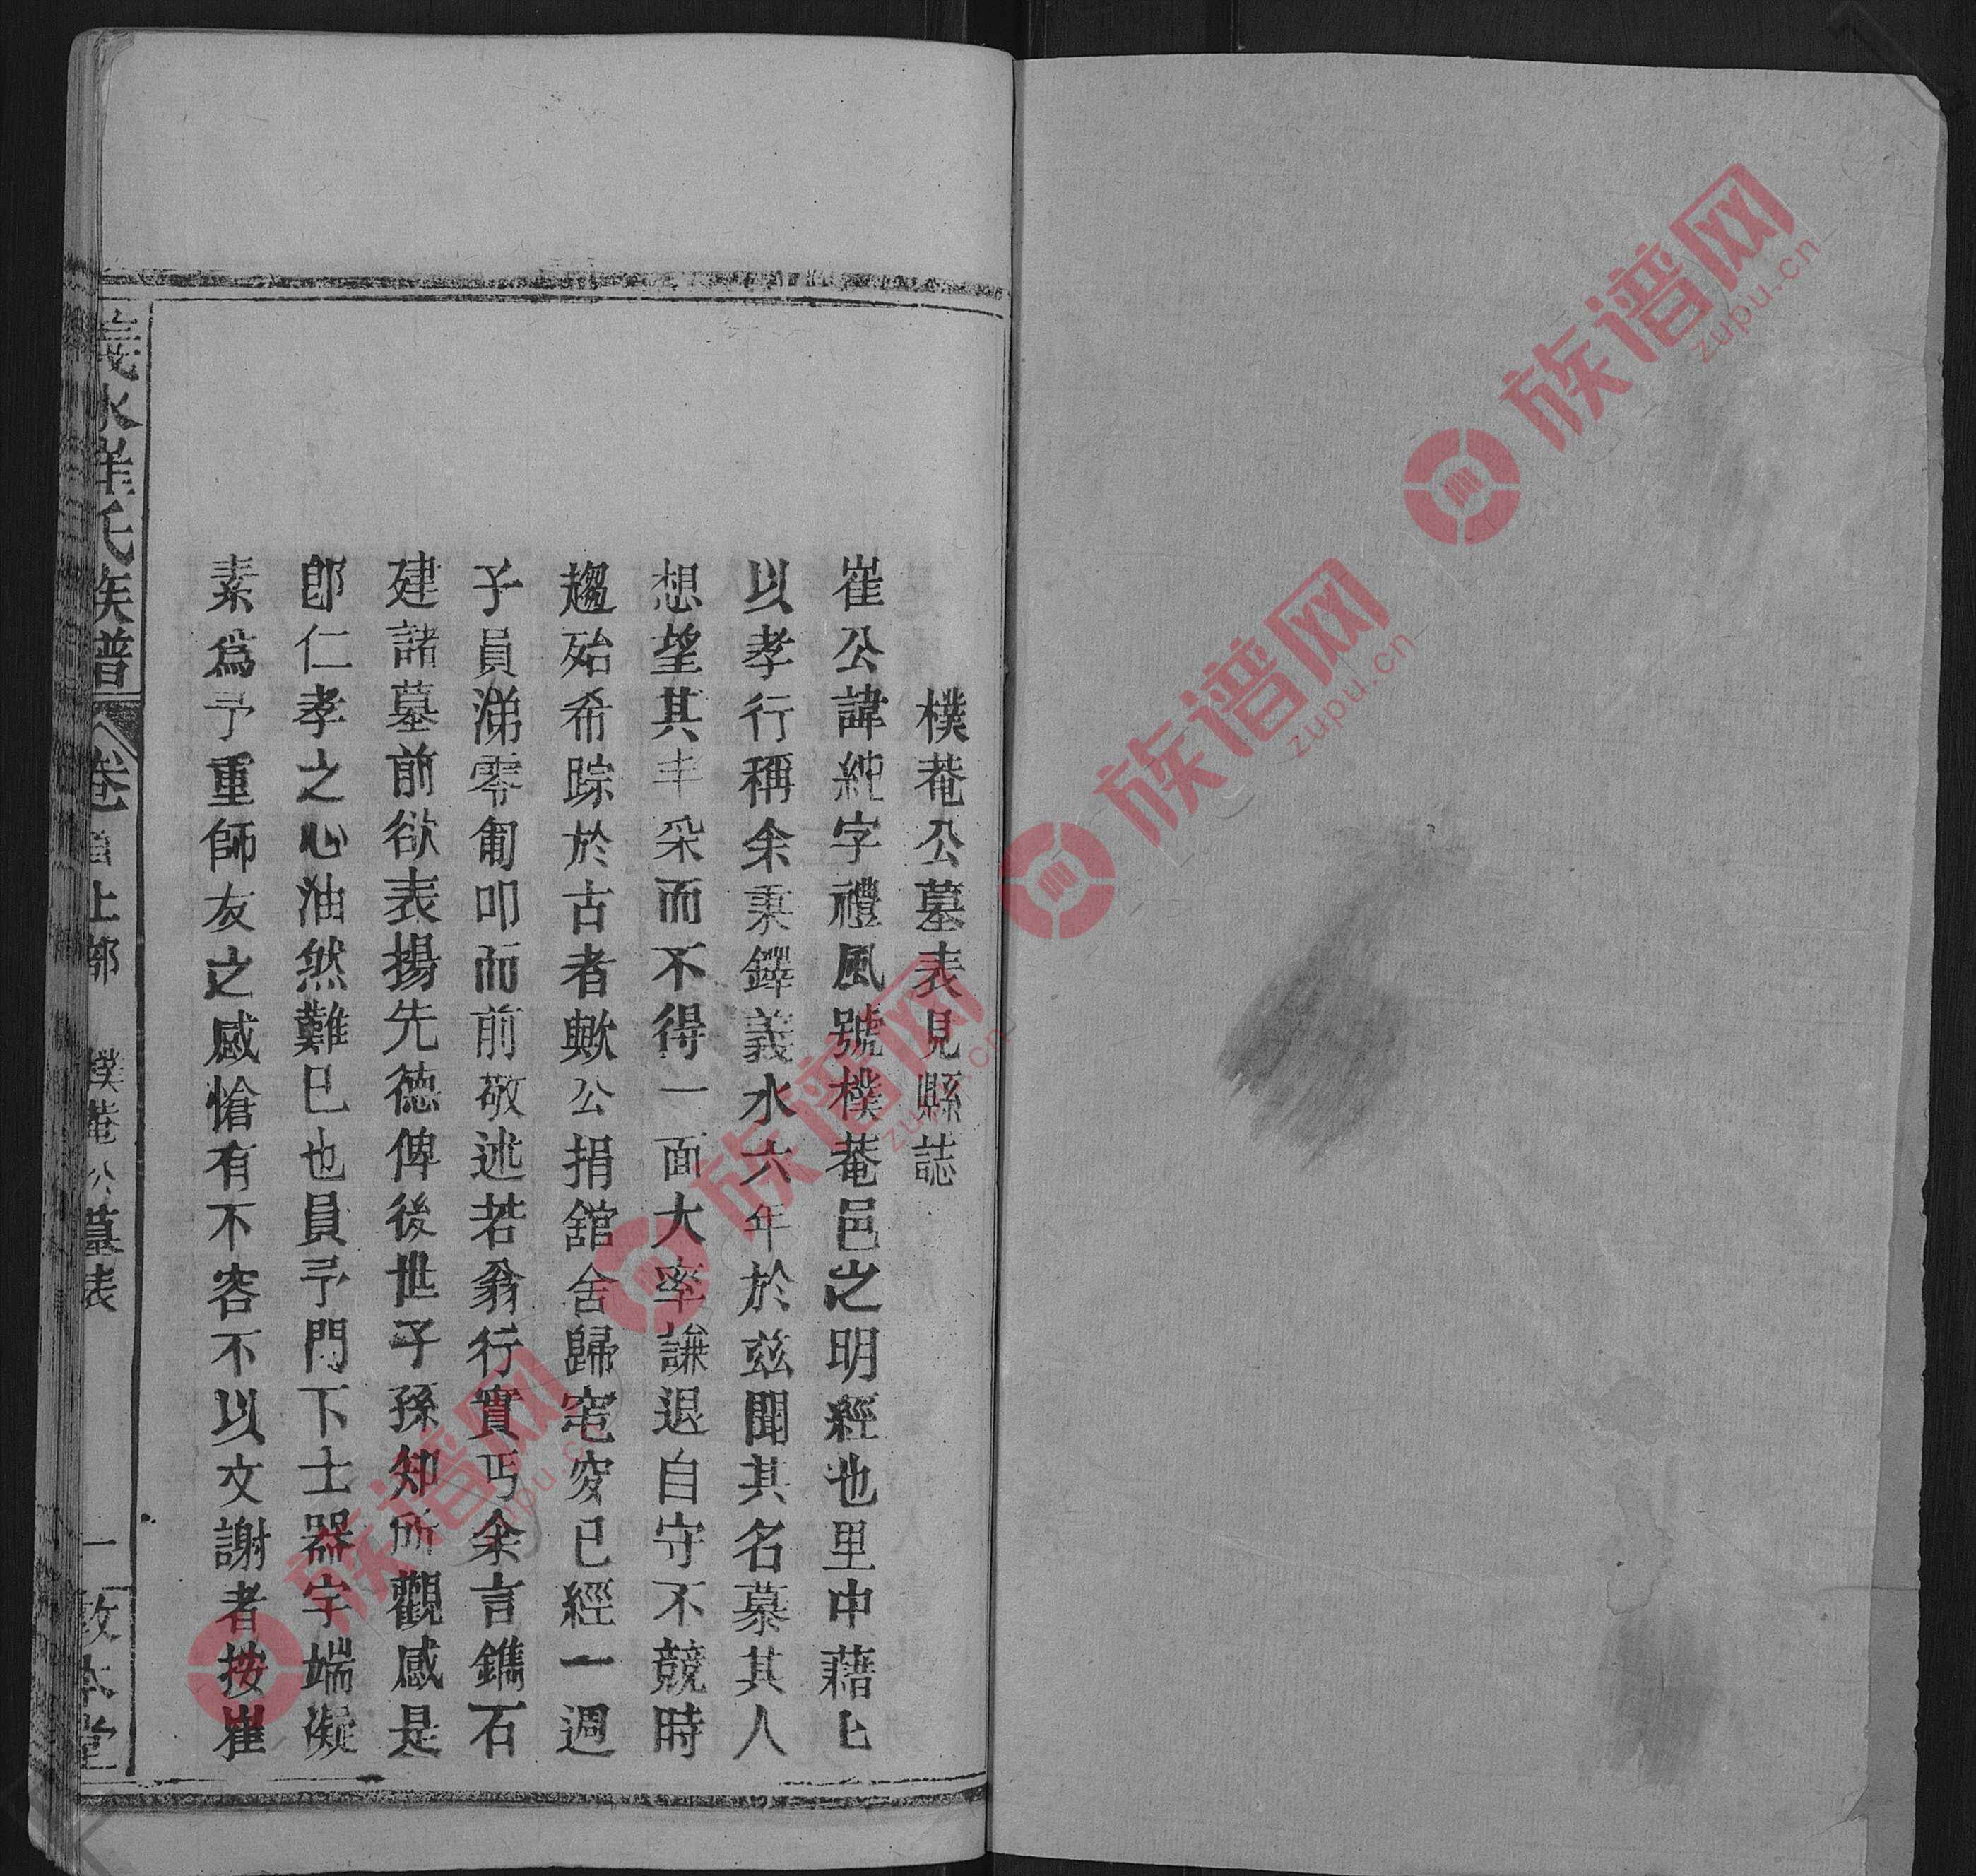 樸菴公墓表見縣誌
崔公諱純字禮風號樸菴邑之明經也里中藉匕
以孝行稱余秉鐸義水六年於兹聞其名慕其人
想望其丰采而不得一面大率謙退自守不競時
趨殆希踪於古者歟公捐舘舍歸窀穸已經一週
子員涕零匍叩而前敬述若翁行實丐余言鐫石
建諸墓前欲表揚先德俾後世子孫知所觀感是
卽仁孝之心油然難已也員予門下士器宇端凝
素爲予重師友之感愴有不容不以文謝者按崔
義水崔氏族譜 卷首上部 樸菴公墓表 一 敦本堂
族谱网 zupu.cn
族谱网 zupu.cn
族谱网 zupu.cn
族谱网 zupu.cn